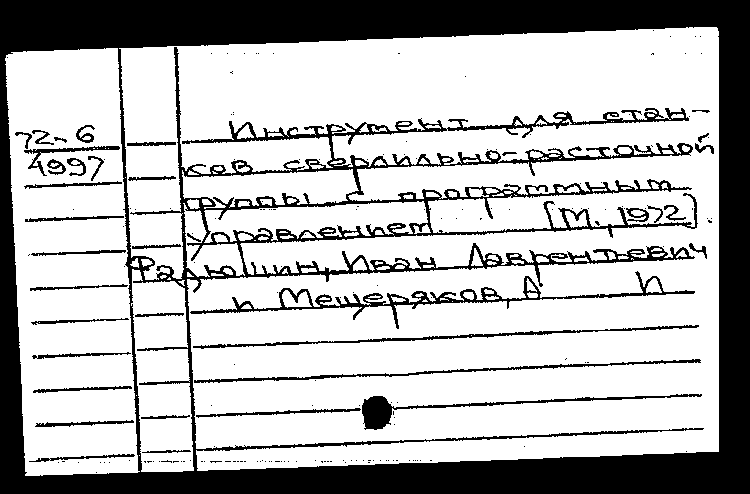 72-6
4997
Инструмент для стан-
ков сверлильно-расточной
группы с программным
управлением. [М., 1972].
Фадюшин, Иван Лаврентьевич
и Мещеряков, А